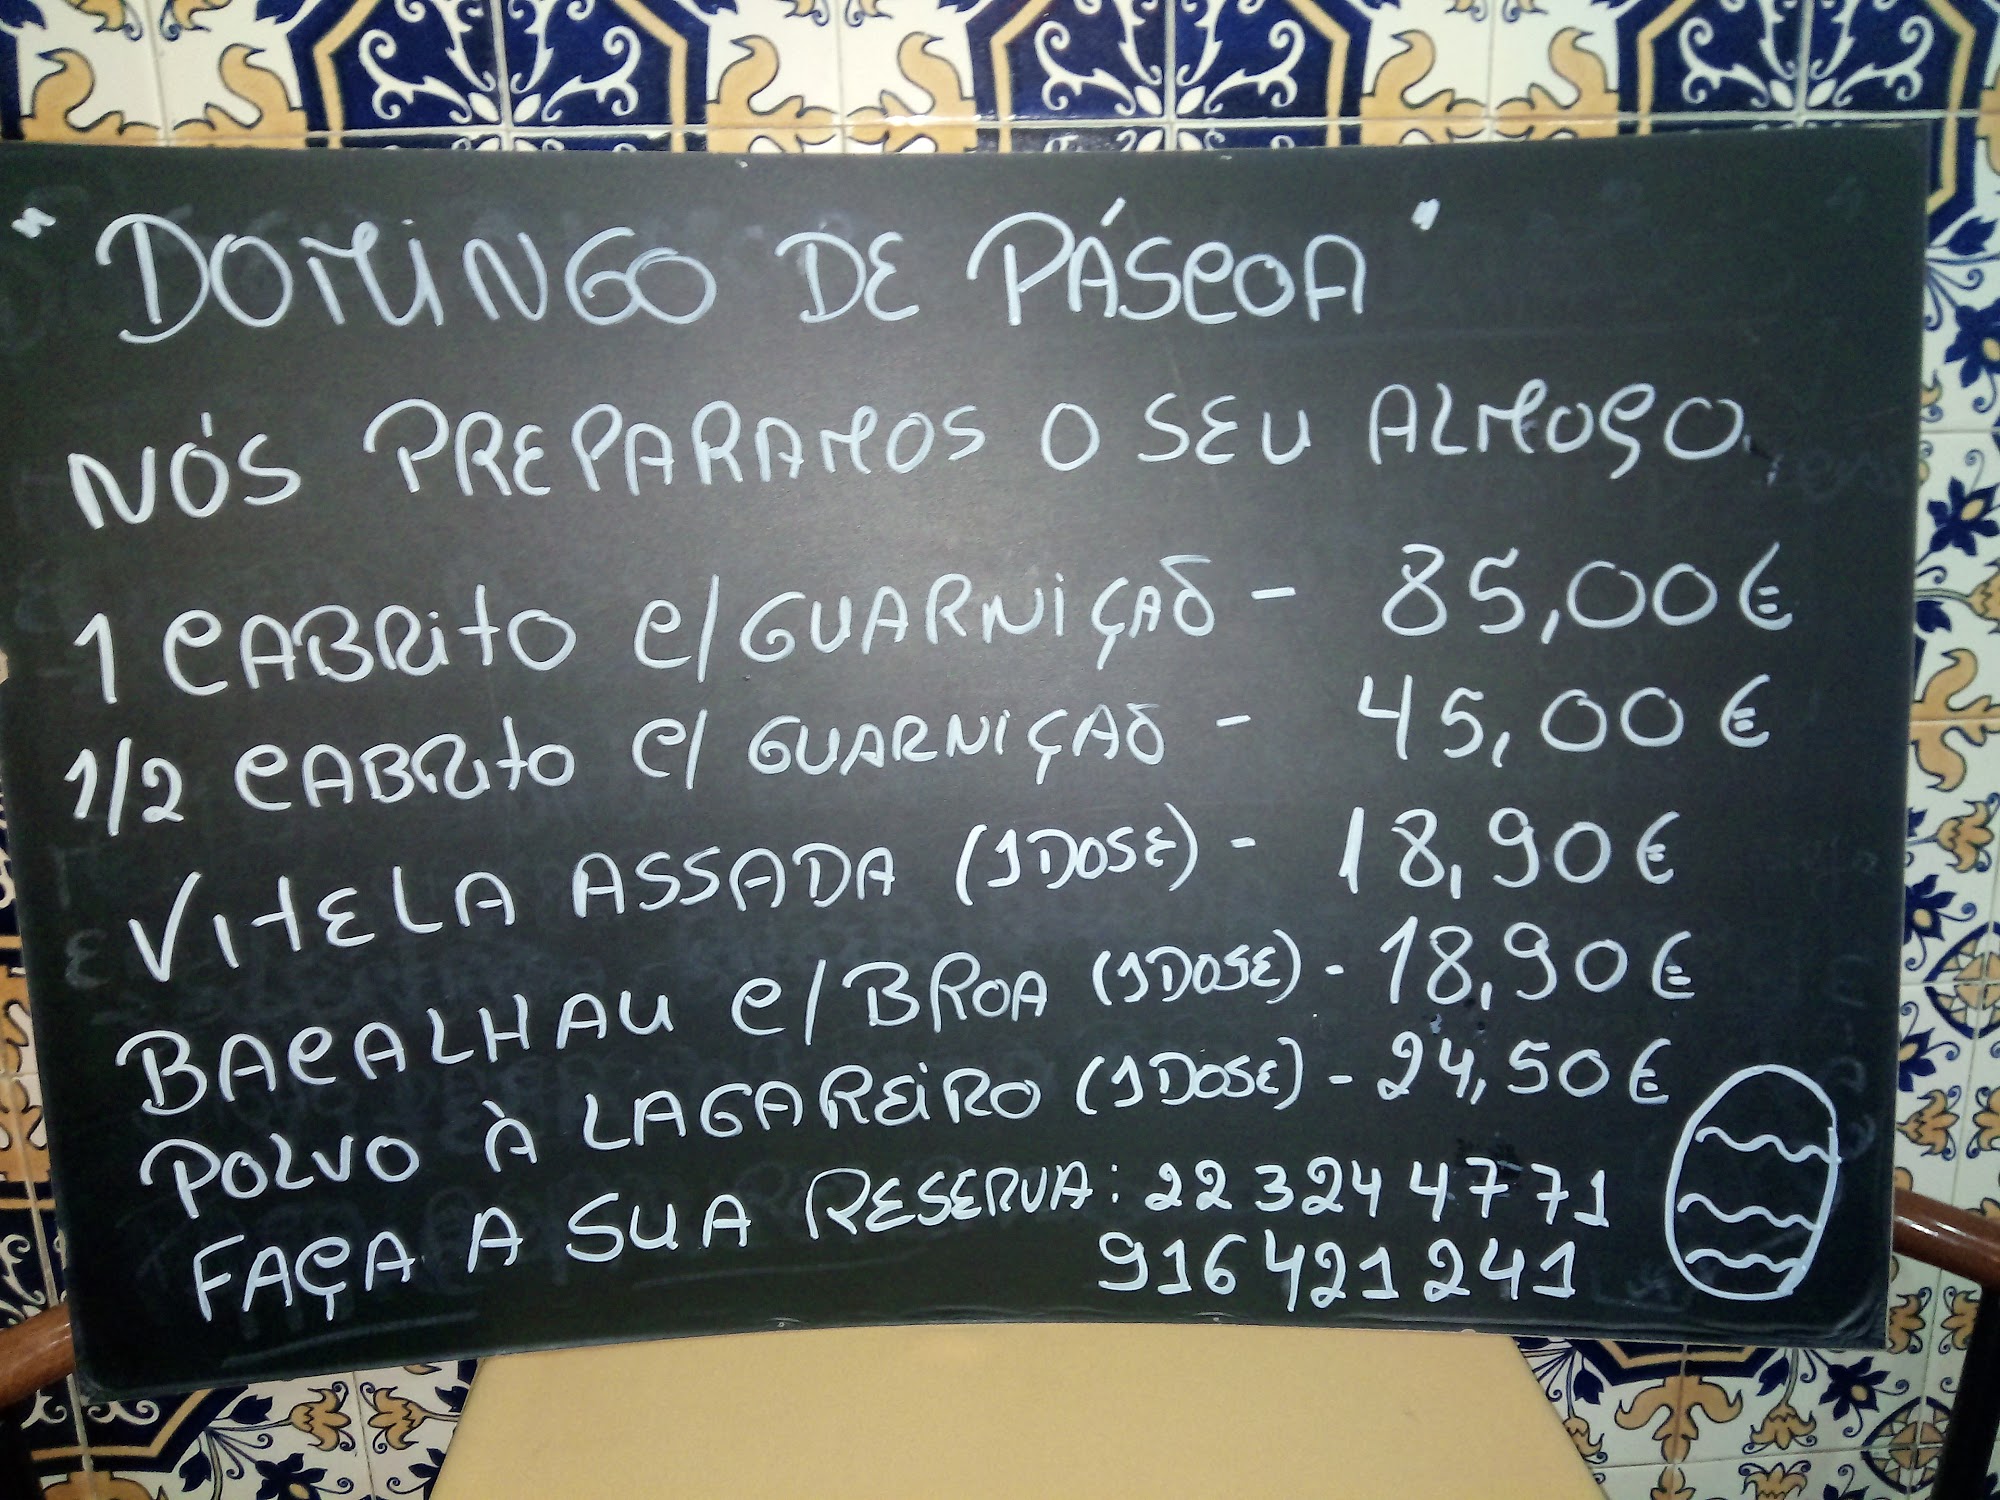 "DOMINGO DE PÁSCOA"
NÓS PREPARAMOS O SEU ALMOÇO.
1 CABRITO C/GUARNIÇAÕ - 85,00€
1/2 CABRITO C/ GUARNIÇAÕ - 45,00€
VITELA ASSADA (1DOSE) - 18,90€
BACALHAU C/BROA (1DOSE) - 18,90€
POLVO À LAGAREIRO (1DOSE) - 24,50€
FAÇA A SUA RESERVA: 22 324 4771
916 421 241